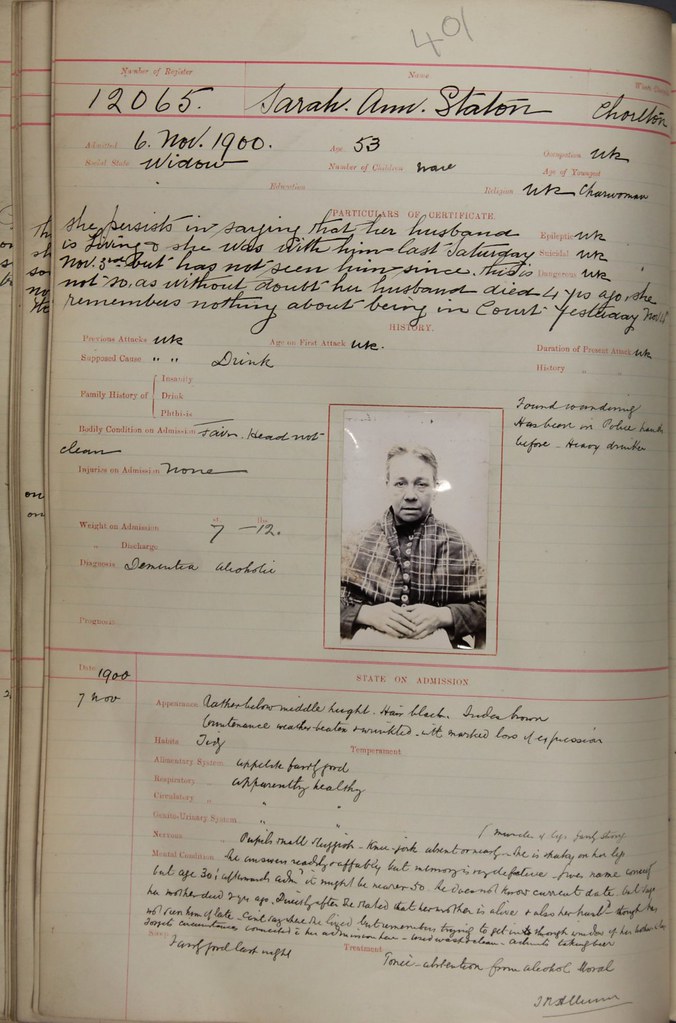 401
Number of Register Name
12065. Sarah. Ann. Staton Chorlton
Admitted 6. Nov. 1900. Age 53 Occupation uk
Social State Widow Number of Children Age of Youngest
Education Religion uk Charwoman
PARTICULARS OF CERTIFICATE.
she persists in saying that her husband Epileptic uk
is living & she was with him last Saturday Suicidal uk
Nov. 3rd but has not seen him since. this is Dangerous uk
not so, as without doubt her husband died 4 yrs ago, she
remembers nothing about being in Court yesterday
HISTORY.
Previous Attacks uk Age on First Attack uk. Duration of Present Attack uk
Supposed Cause " " Drink History
Insanity
Family History of Drink
Phthisis
Found wandering
Has been in Police hands
before - Heavy drinker
Bodily Condition on Admission Fair. Head not
clean
Injuries on Admission None
st. lbs.
Weight on Admission 7 - 12.
" Discharge
Diagnosis Dementia alcoholic
Prognosis
Date 1900 STATE ON ADMISSION
7 Nov Appearance Rather below middle height. Hair black. Irides brown
Countenance weather-beaten & wrinkled - with marked loss of expression
Habits Tidy Temperament
Alimentary System appetite fairly good
Respiratory " apparently healthy
Circulatory " "
Genito-Urinary System " "
Nervous " Pupils small sluggish - Knee-jerk absent or nearly - She is shaky on her legs
Mental Condition She answers readily & affably but memory is very defective - gives name correctly
but age 30; afterwards it might be nearer 50. She does not know current date - but says
her mother died 2 yrs ago. Directly after she stated that her mother is alive & also her husbd - though has
not seen him of late - Cant say where she lived but remembers trying to get in through window of her
circumstances connected with her admission here
Sleep Fairly good last night Treatment
Tonic - abstention from alcohol Moral